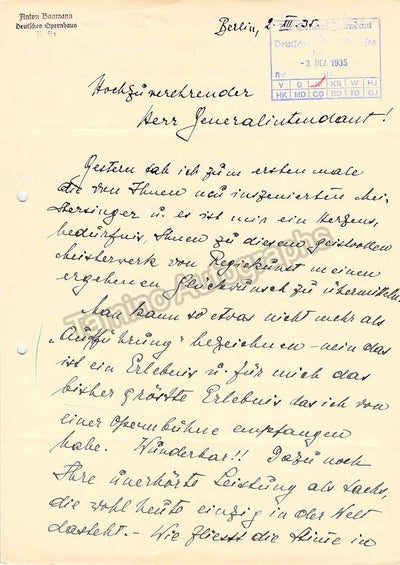 Anton Baumann
Deutsches Opernhaus
Berlin, 2. XII. 35.
Intendant
- 3. DEZ. 1935
V D K KB W HJ
HK MD CD BD TD GJ
Hochzuverehrender
Herr Generalintendant!
Gestern sah ich zum ersten male
die von Ihnen neu inszenierten Mei-
stersinger u. es ist mir ein Herzens-
bedürfnis, Ihnen zu diesem geistvollen
Meisterwerk von Regiekunst meinen
ergebenen Glückwunsch zu übermitteln.
Man kann so etwas nicht mehr als
„Aufführung" bezeichnen – nein das
ist ein Erlebnis u. für mich das
bisher grösste Erlebnis das ich von
einer Opernbühne empfangen
habe. Wunderbar!! Dazu noch
Ihre unerhörte Leistung als Sachs,
die wohl heute einzig in der Welt
dasteht. – Wie fliesst die Stimme in
Tamino Autographs